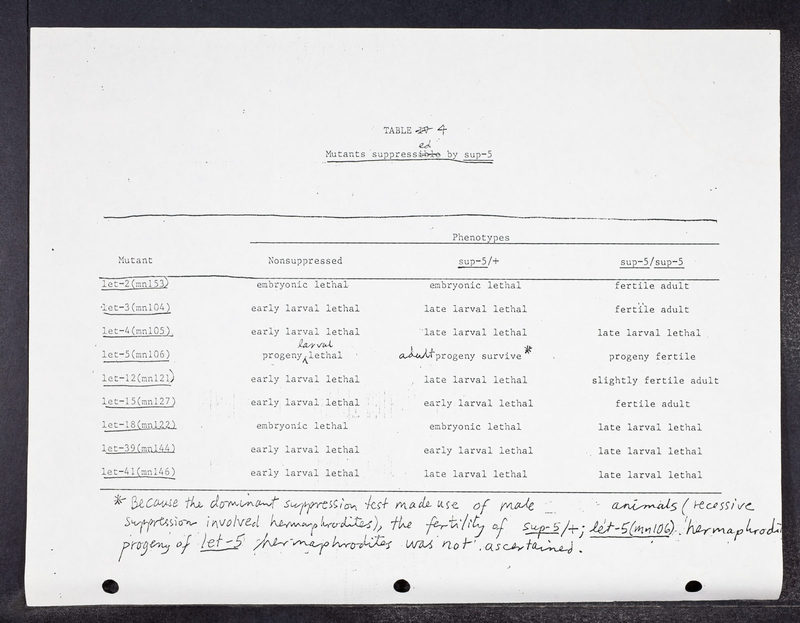 TABLE 4
Mutants suppressed by sup-5
Phenotypes
Mutant Nonsuppressed sup-5/+ sup-5/sup-5
let-2(mn153) embryonic lethal embryonic lethal fertile adult
let-3(mn104) early larval lethal late larval lethal fertile adult
let-4(mn105) early larval lethal late larval lethal late larval lethal
let-5(mn106) progeny larval lethal adult progeny survive* progeny fertile
let-12(mn121) early larval lethal late larval lethal slightly fertile adult
let-15(mn127) early larval lethal early larval lethal fertile adult
let-18(mn122) embryonic lethal embryonic lethal late larval lethal
let-39(mn144) early larval lethal early larval lethal late larval lethal
let-41(mn146) early larval lethal late larval lethal late larval lethal
* Because the dominant suppression test made use of male animals (recessive
suppression involved hermaphrodites), the fertility of sup-5/+; let-5(mn106) hermaphrodi
progeny of let-5 hermaphrodites was not ascertained.